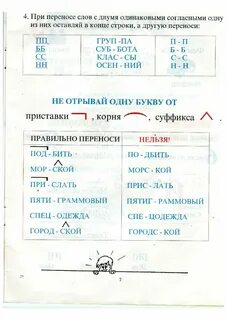 4. При переносе слов с двумя одинаковыми согласными одну
из них оставляй в конце строки, а другую переноси:
ПП ГРУП -ПА П - П
ББ СУБ - БОТА Б - Б
СС КЛАС - СЫ С - С
НН ОСЕН - НИЙ Н - Н
НЕ ОТРЫВАЙ ОДНУ БУКВУ ОТ
приставки , корня , суффикса
ПРАВИЛЬНО ПЕРЕНОСИ НЕЛЬЗЯ!
ПОД - БИТЬ ПО - ДБИТЬ
МОР - СКОЙ МОРС - КОЙ
ПРИ - СЛАТЬ ПРИС - ЛАТЬ
ПЯТИ - ГРАММОВЫЙ ПЯТИГ - РАММОВЫЙ
СПЕЦ - ОДЕЖДА СПЕ - ЦОДЕЖДА
ГОРОД - СКОЙ ГОРОДС - КОЙ
7